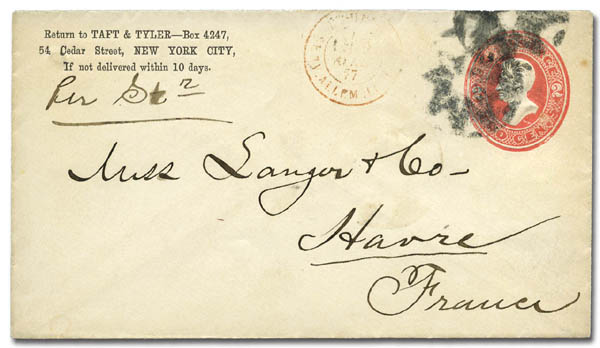 Return to TAFT & TYLER—Box 4247,
54 Cedar Street, NEW YORK CITY,
If not delivered within 10 days.
Per Str
Miss Langer & Co-
Havre
France
77